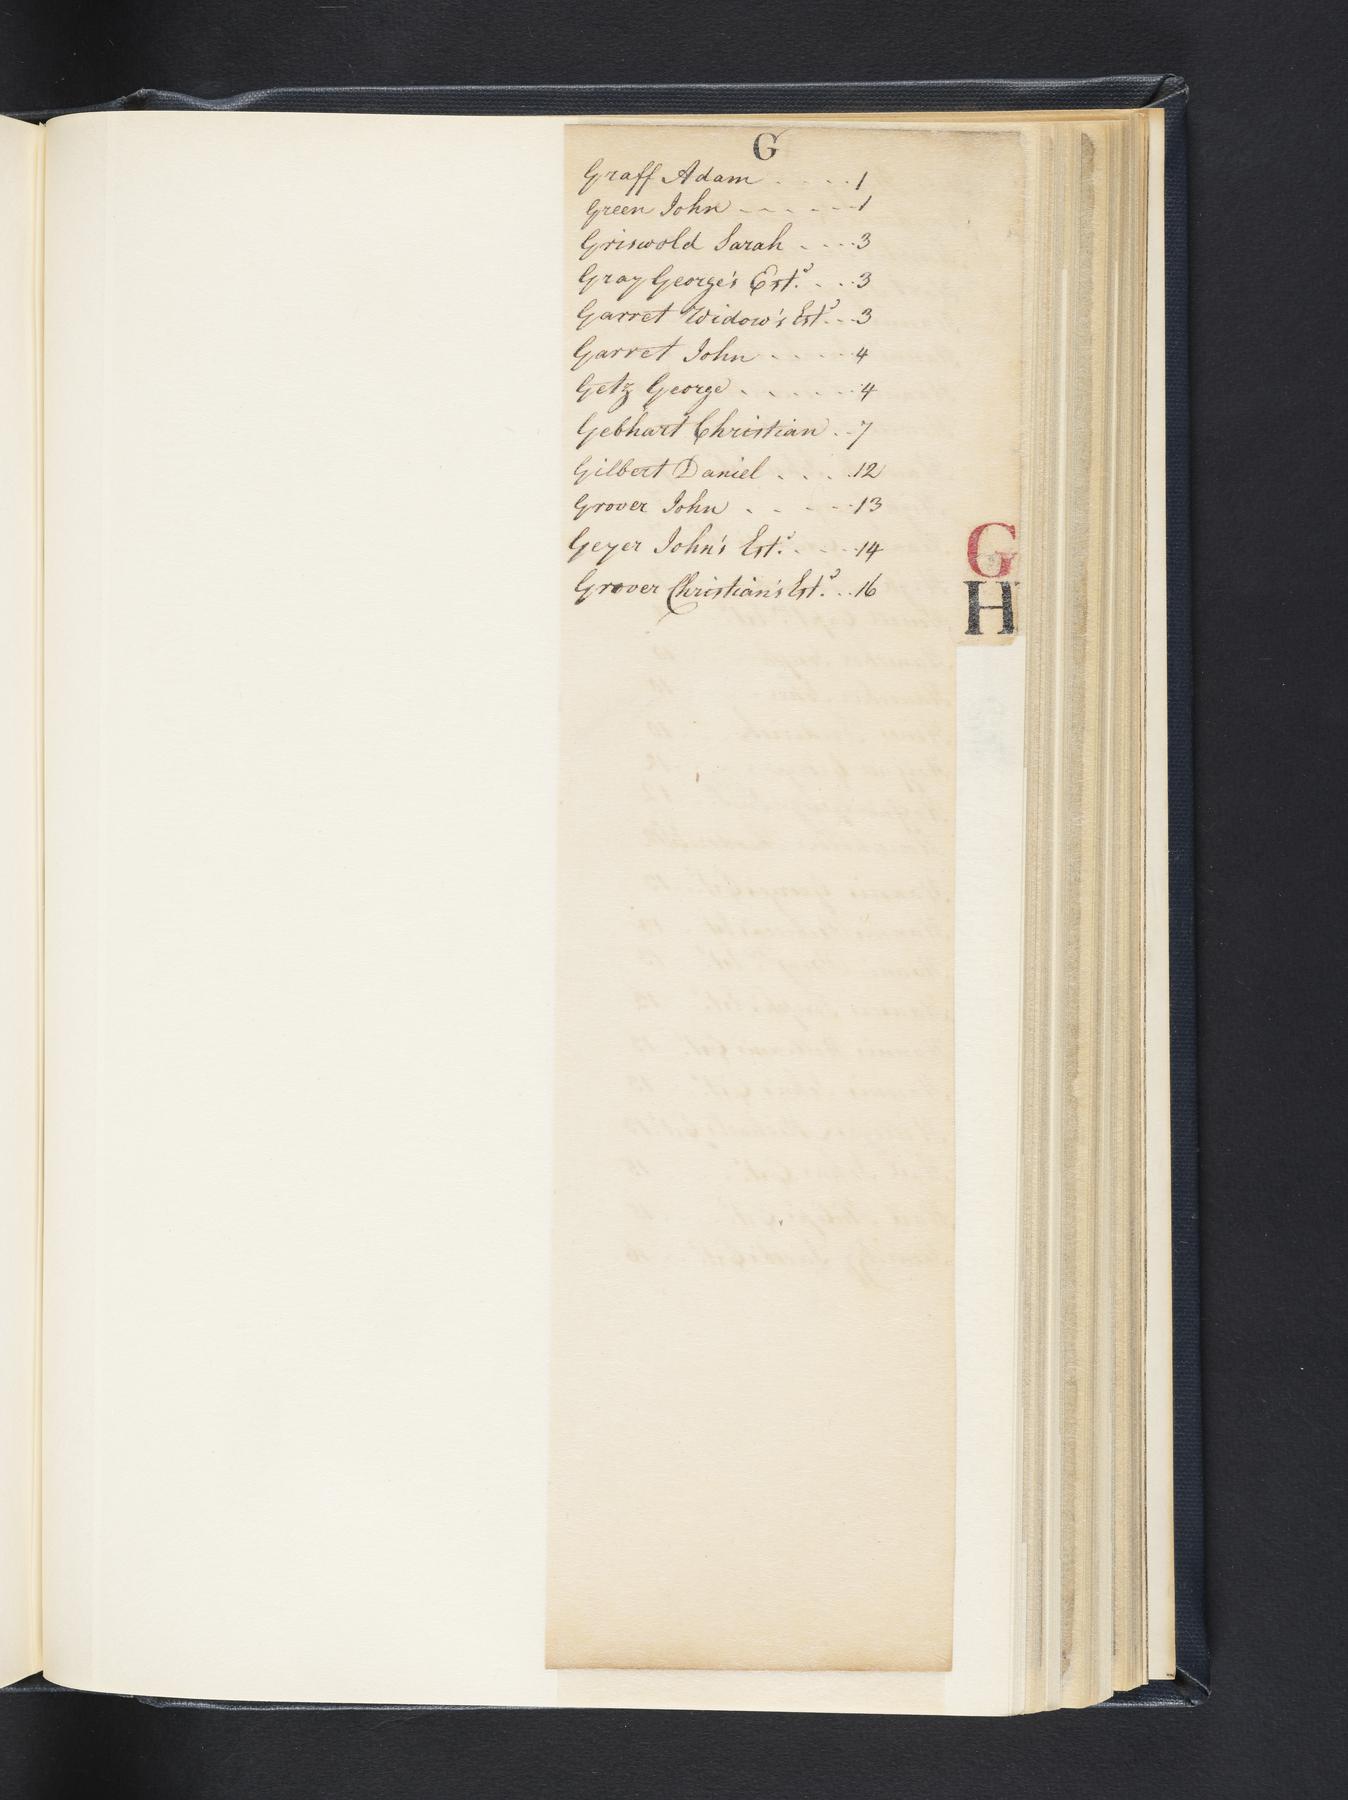 G
Graff Adam . . . . 1
Green John - - - - - - 1
Griswold Sarah . . . . 3
Gray George's Est.ᵉ . . . 3
Garret Widow's Est.ᵉ . . 3
Garret John . . . . . 4
Getz George . . . . . . 4
Gebhart Christian . . 7
Gilbert Daniel . . . . 12
Grover John . . . . . 13
Geyer John's Est.ᵉ . . . . 14
Grover Christian's Est.ᵉ . . 16
G
H